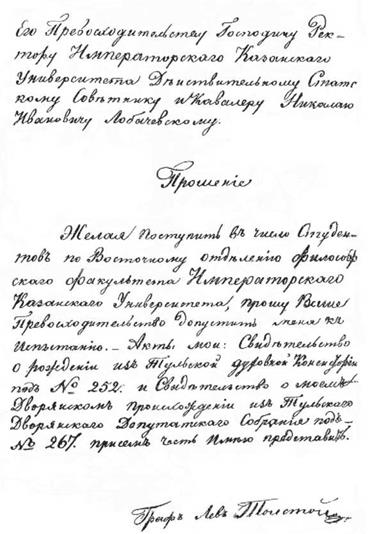 Его Превосходительству Господину Рек-
тору Императорского Казанского
Университета Дѣиствительному Статс
кому Совѣтнику и Кавалеру Николаю
Ивановичу Лобачевскому.
Прошеніе
Желая поступить въ число Студен-
товъ по Восточному отдѣленію философ
скаго факультета Императорскаго
Казанскаго Университета, прошу Ваше
Превосходительство допустить меня къ
испытанію. — Акты мои: Свидѣтельство
о рожденіи изъ Тульской духовной Консисторіи
подъ № 252. и Свидѣтельство о моемъ
Дворянскомъ происхожденіи изъ Тульскаго
Дворянскаго Депутатскаго Собранія подъ
№ 267. присемъ честь имѣю представить.
Графъ Левъ Толстой